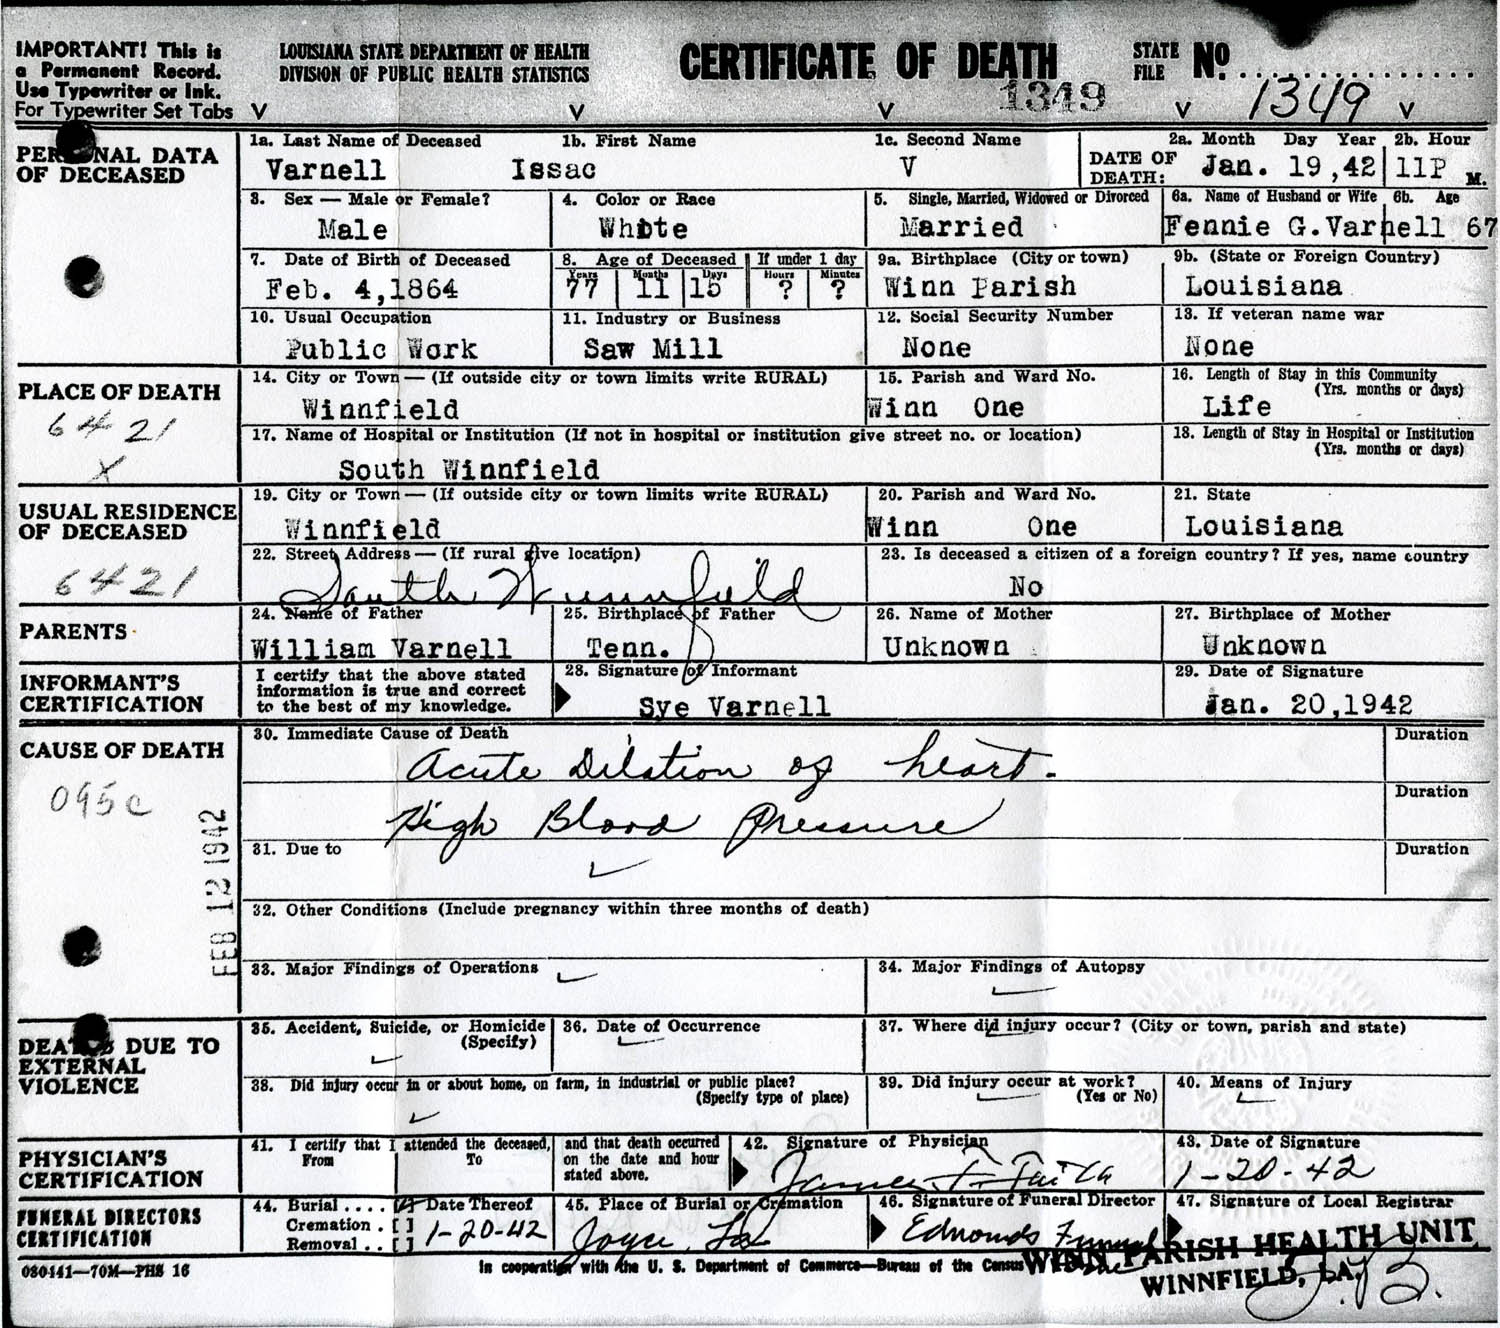 IMPORTANT! This is
a Permanent Record.
Use Typewriter or Ink.
For Typewriter Set Tabs V V V V V
LOUISIANA STATE DEPARTMENT OF HEALTH
DIVISION OF PUBLIC HEALTH STATISTICS
CERTIFICATE OF DEATH
1349
STATE FILE NO. 1349
PERSONAL DATA
OF DECEASED
1a. Last Name of Deceased 1b. First Name 1c. Second Name 2a. Month Day Year 2b. Hour
Varnell Issac V DATE OF DEATH: Jan. 19,42 11P M.
3. Sex — Male or Female? 4. Color or Race 5. Single, Married, Widowed or Divorced 6a. Name of Husband or Wife 6b. Age
Male Whbte Married Fennie G.Varnell 67
7. Date of Birth of Deceased 8. Age of Deceased If under 1 day 9a. Birthplace (City or town) 9b. (State or Foreign Country)
Years Months Days Hours Minutes
Feb. 4,1864 77 11 15 ? ? Winn Parish Louisiana
10. Usual Occupation 11. Industry or Business 12. Social Security Number 13. If veteran name war
Public Work Saw Mill None None
PLACE OF DEATH
6421
X
14. City or Town — (If outside city or town limits write RURAL) 15. Parish and Ward No. 16. Length of Stay in this Community
(Yrs. months or days)
Winnfield Winn One Life
17. Name of Hospital or Institution (If not in hospital or institution give street no. or location) 18. Length of Stay in Hospital or Institution
(Yrs. months or days)
South Winnfield
USUAL RESIDENCE
OF DECEASED
6421
19. City or Town — (If outside city or town limits write RURAL) 20. Parish and Ward No. 21. State
Winnfield Winn One Louisiana
22. Street Address — (If rural give location) 23. Is deceased a citizen of a foreign country? If yes, name country
South Winnfield No
PARENTS
24. Name of Father 25. Birthplace of Father 26. Name of Mother 27. Birthplace of Mother
William Varnell Tenn. Unknown Unknown
INFORMANT'S
CERTIFICATION
I certify that the above stated
information is true and correct
to the best of my knowledge.
28. Signature of Informant 29. Date of Signature
Sye Varnell Jan. 20,1942
CAUSE OF DEATH
095c
FEB 12 1942
30. Immediate Cause of Death Duration
Acute Dilation of heart.
Duration
High Blood Pressure
31. Due to Duration
32. Other Conditions (Include pregnancy within three months of death)
33. Major Findings of Operations 34. Major Findings of Autopsy
DEATHS DUE TO
EXTERNAL
VIOLENCE
35. Accident, Suicide, or Homicide
(Specify)
36. Date of Occurrence 37. Where did injury occur? (City or town, parish and state)
38. Did injury occur in or about home, on farm, in industrial or public place?
(Specify type of place)
39. Did injury occur at work?
(Yes or No)
40. Means of Injury
PHYSICIAN'S
CERTIFICATION
41. I certify that I attended the deceased,
From To
and that death occurred
on the date and hour
stated above.
42. Signature of Physician 43. Date of Signature
James F. Faith 1-20-42
FUNERAL DIRECTORS
CERTIFICATION
44. Burial .... [ ] Date Thereof
Cremation . [ ] 1-20-42
Removal .. [ ]
45. Place of Burial or Cremation
Joyce, La
46. Signature of Funeral Director
Edmonds Funeral
47. Signature of Local Registrar
WINN PARISH HEALTH UNIT
WINNFIELD, LA.
030441—70M—PHS 16
In cooperation with the U. S. Department of Commerce—Bureau of the Census